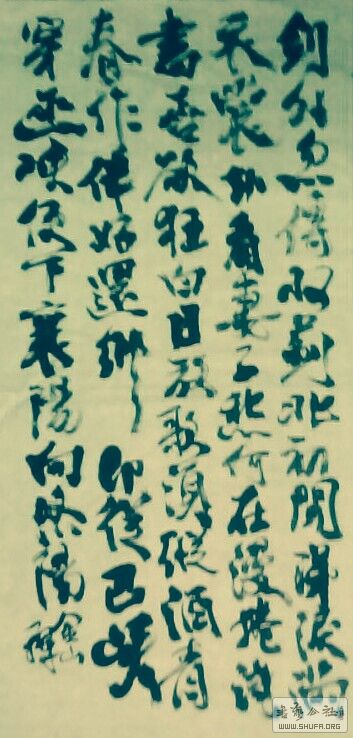 劍外忽傳收薊北初聞涕淚滿
衣裳却看妻子愁何在漫捲詩
書喜欲狂白日放歌須縱酒青
春作伴好還鄉即從巴峽
穿巫峽便下襄陽向洛陽
书法公社
WWW.SHUFA.ORG